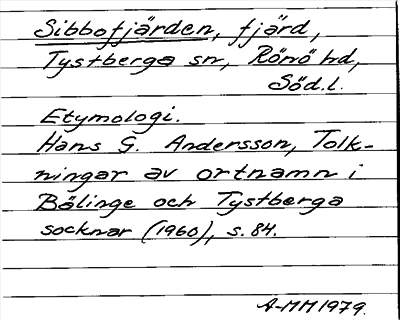 Sibbofjärden, fjärd,
Tystberga sn, Rönö hd,
Söd.l.
Etymologi.
Hans G. Andersson, Tolk-
ningar av ortnamn i
Bälinge och Tystberga
socknar (1960), s. 84.
A-MM1979.